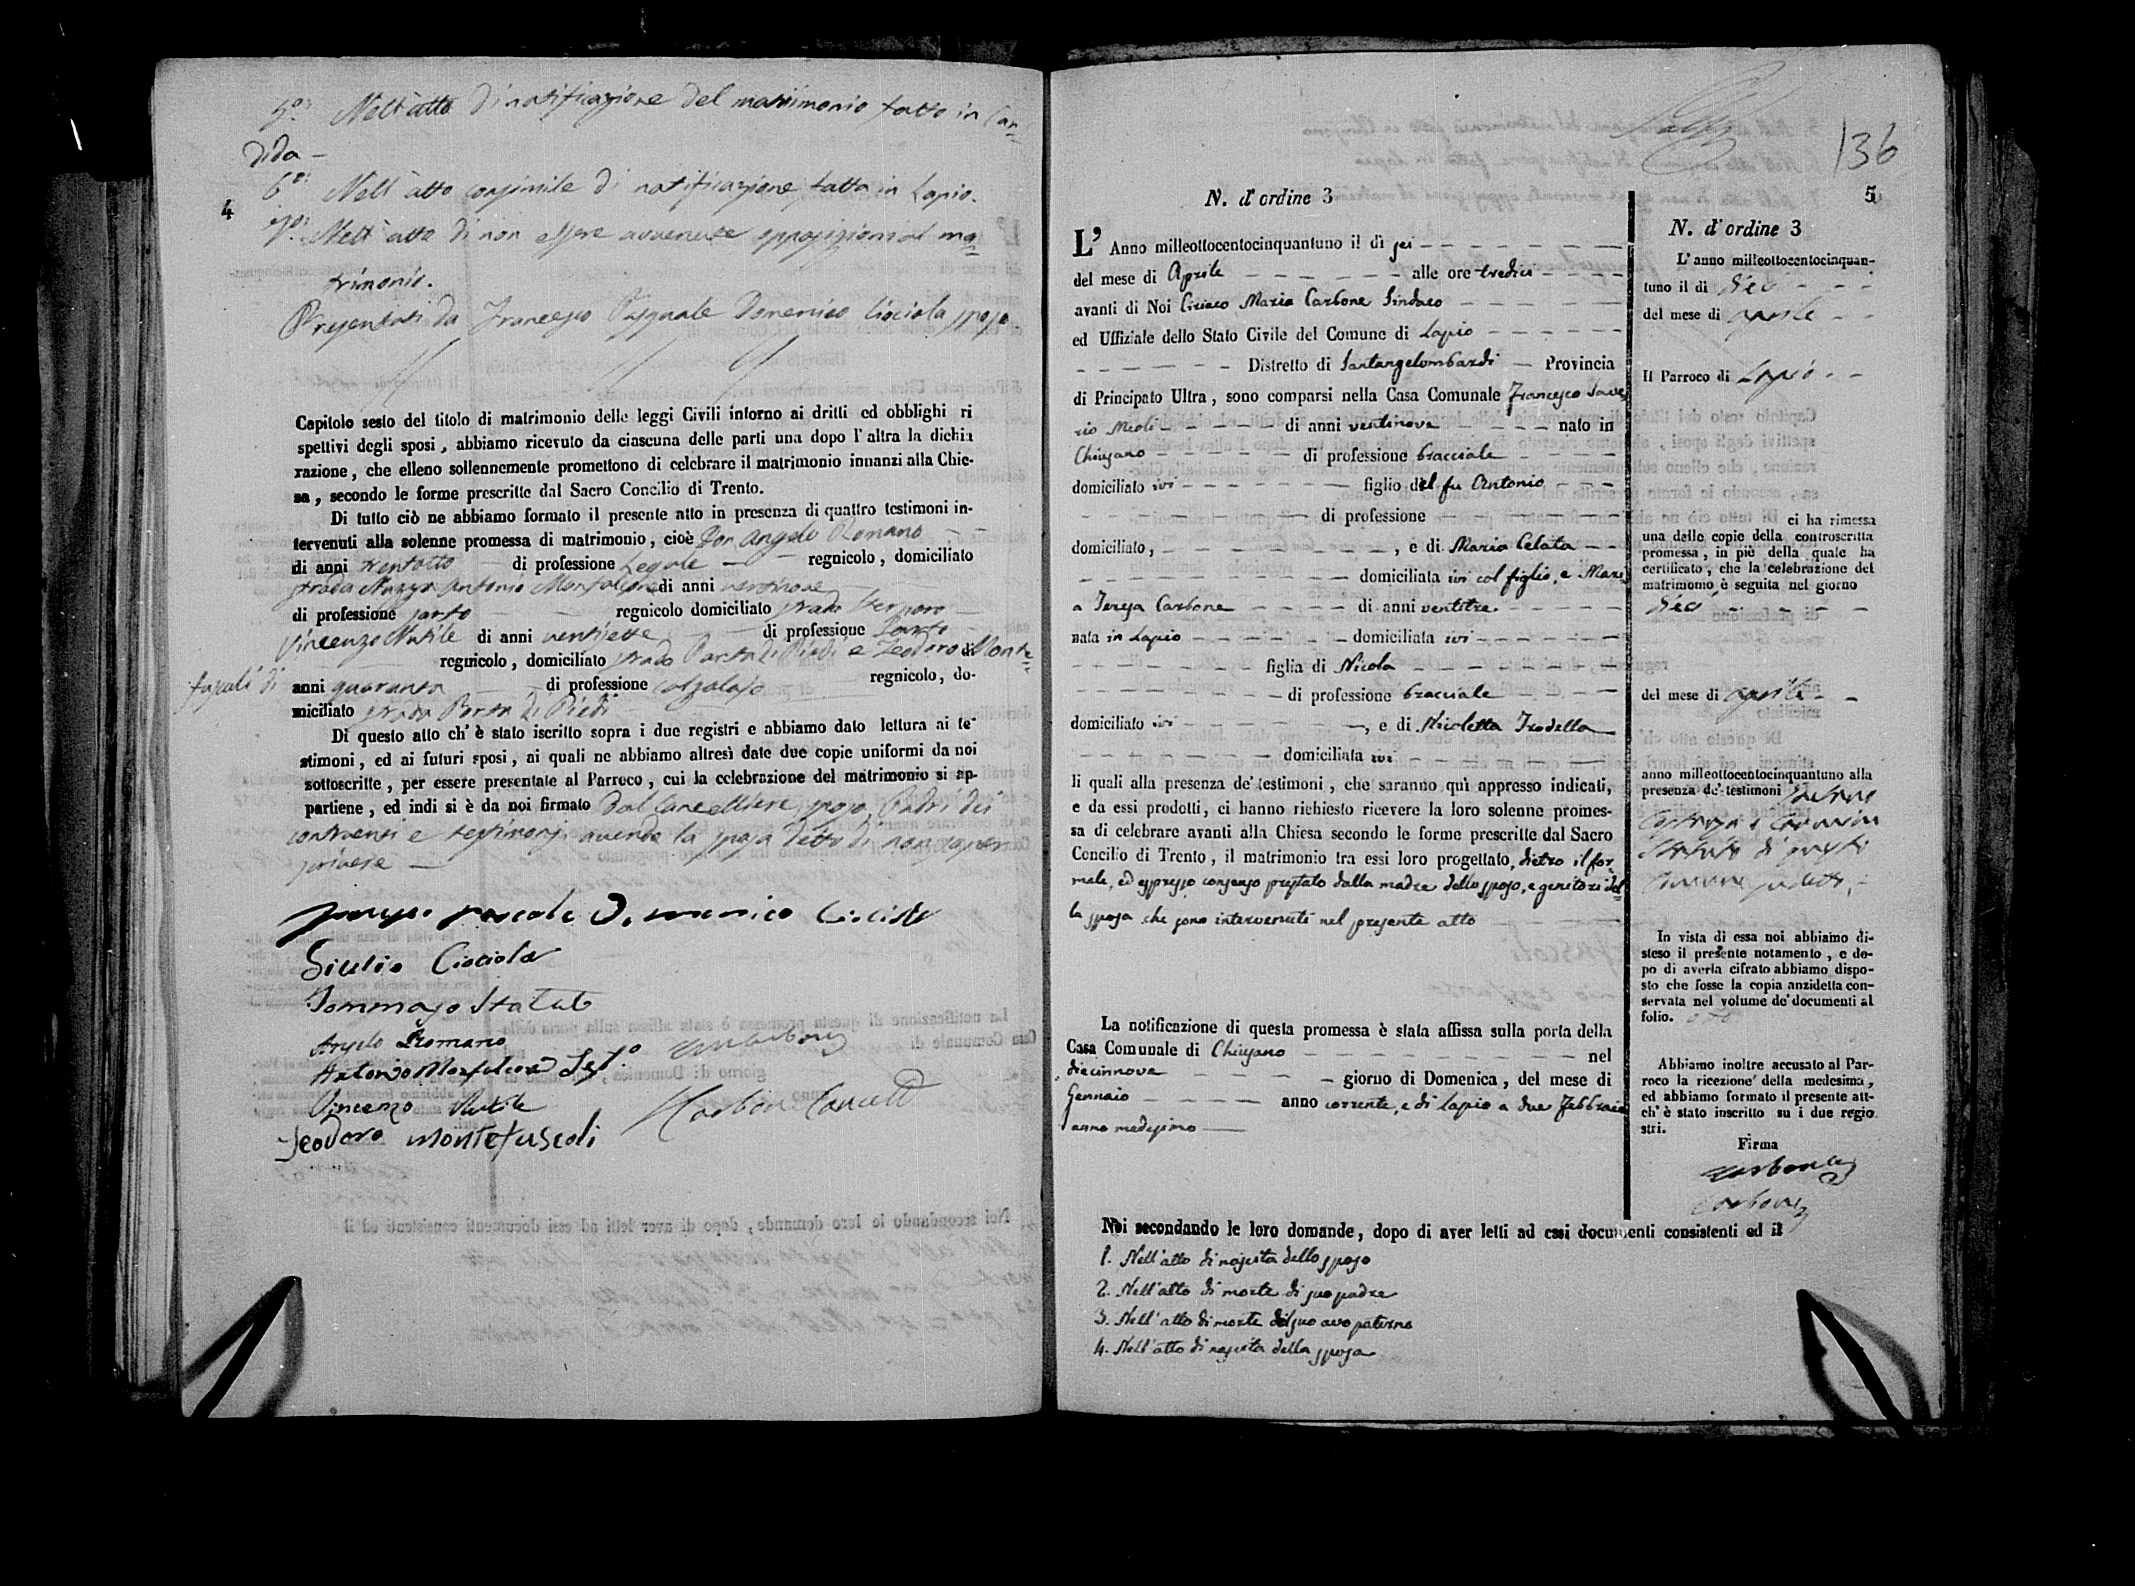 5°: Nell'atto di notificazione del matrimonio fatto in Can=
dida –
6°: Nell'atto consimile di notificazione fatta in Lapio.
4
7°: Nell'atto di non essere avvenute opposizioni al ma=
trimonio.
Presentati da Francesco Pasquale Domenico Ciociola sposo
Capitolo sesto del titolo di matrimonio delle leggi Civili intorno ai dritti ed obblighi ri
spettivi degli sposi, abbiamo ricevuto da ciascuna delle parti una dopo l'altra la dichia
razione, che elleno sollennemente promettono di celebrare il matrimonio innanzi alla Chie-
sa, secondo le forme prescritte dal Sacro Concilio di Trento.
Di tutto ciò ne abbiamo formato il presente atto in presenza di quattro testimoni in-
tervenuti alla solenne promessa di matrimonio, cioè Don Angelo Romano
di anni trentotto di professione Legale regnicolo, domiciliato
strada Antonio di anni ventinove
di professione sarto regnicolo domiciliato strada
Vincenzo Nutile di anni ventisette di professione Sarto
regnicolo, domiciliato strada Porta di Piedi e Teodoro Monte=
fuscoli di anni quaranta di professione calzolajo regnicolo, do-
miciliato strada Porta di Piedi
Di questo atto ch'è stato iscritto sopra i due registri e abbiamo dato lettura ai te-
stimoni, ed ai futuri sposi, ai quali ne abbiamo altresì date due copie uniformi da noi
sottoscritte, per essere presentate al Parroco, cui la celebrazione del matrimonio si ap-
partiene, ed indi si è da noi firmato dal Cancelliere, sposo, Padri dei
contraenti e testimonj avendo la sposa detto di non saper
scrivere —
pascale Domenico
Giulio Ciociola
Tommaso Statuto
Angelo Romano
Antonio
Vincenzo Nutile
Carbone Cancell
Teodoro Montefuscoli
136
5
N. d'ordine 3
L'Anno milleottocentocinquantuno il dì sei
del mese di Aprile alle ore tredici
avanti di Noi Ciriaco Maria Carbone Sindaco
ed Uffiziale dello Stato Civile del Comune di Lapio
Distretto di Santangelombardi Provincia
di Principato Ultra, sono comparsi nella Casa Comunale Francesco Save
rio Meoli di anni ventinove nato in
Chiusano di professione bracciale
domiciliato ivi figlio del fu Antonio
di professione
domiciliato, , e di Maria Celata
domiciliata ivi col figlio, e Mari
a Teresa Carbone di anni ventitre
nata in Lapio domiciliata ivi
figlia di Nicola
di professione bracciale
domiciliato ivi , e di Nicoletta Trodella
domiciliata ivi
li quali alla presenza de' testimoni, che saranno quì appresso indicati,
e da essi prodotti, ci hanno richiesto ricevere la loro solenne promes-
sa di celebrare avanti alla Chiesa secondo le forme prescritte dal Sacro
Concilio di Trento, il matrimonio tra essi loro progettato, dietro il for=
male, ed espresso consenso prestato dalla madre dello sposo, e genitori del=
la sposa che sono intervenuti nel presente atto
La notificazione di questa promessa è stata affissa sulla porta della
Casa Comunale di Chiusano nel
diecinnove giorno di Domenica, del mese di
Gennaio anno corrente, e di Lapio a due Febbraio
anno medesimo
N. d'ordine 3
L'anno milleottocentocinquan-
tuno il dì dieci
del mese di aprile
Il Parroco di Lapio
ci ha rimessa
una delle copie della controscritta
promessa, in piè della quale ha
certificato, che la celebrazione del
matrimonio è seguita nel giorno
dieci
del mese di aprile
anno milleottocentocinquantuno alla
presenza de' testimoni
Statuto di questo
Comune
In vista di essa noi abbiamo di-
steso il presente notamento, e do-
po di averla cifrato abbiamo dispo-
sto che fosse la copia anzidetta con-
servata nel volume de' documenti al
folio.
Abbiamo inoltre accusato al Par-
roco la ricezione della medesima,
ed abbiamo formato il presente att-
ch'è stato inscritto su i due regio
stri.
Firma
Carbone
Carbone
Noi secondando le loro domande, dopo di aver letti ad essi documenti consistenti ed il
1. Nell'atto di nascita dello sposo
2. Nell'atto di morte di suo padre
3. Nell'atto di morte del suo avo paterno
4. Nell'atto di nascita della sposa